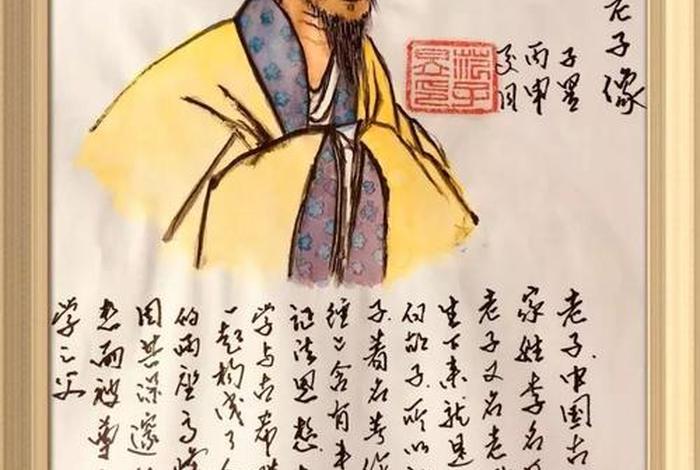 老子像
丙申
老子.中国古
家姓李名
老子又名老
生下来就是
白胡子所以
子著名著作
经》含有丰
证法思想
学与古希
一起构成了
的两座高峰
因其深邃
想而被尊
学之父